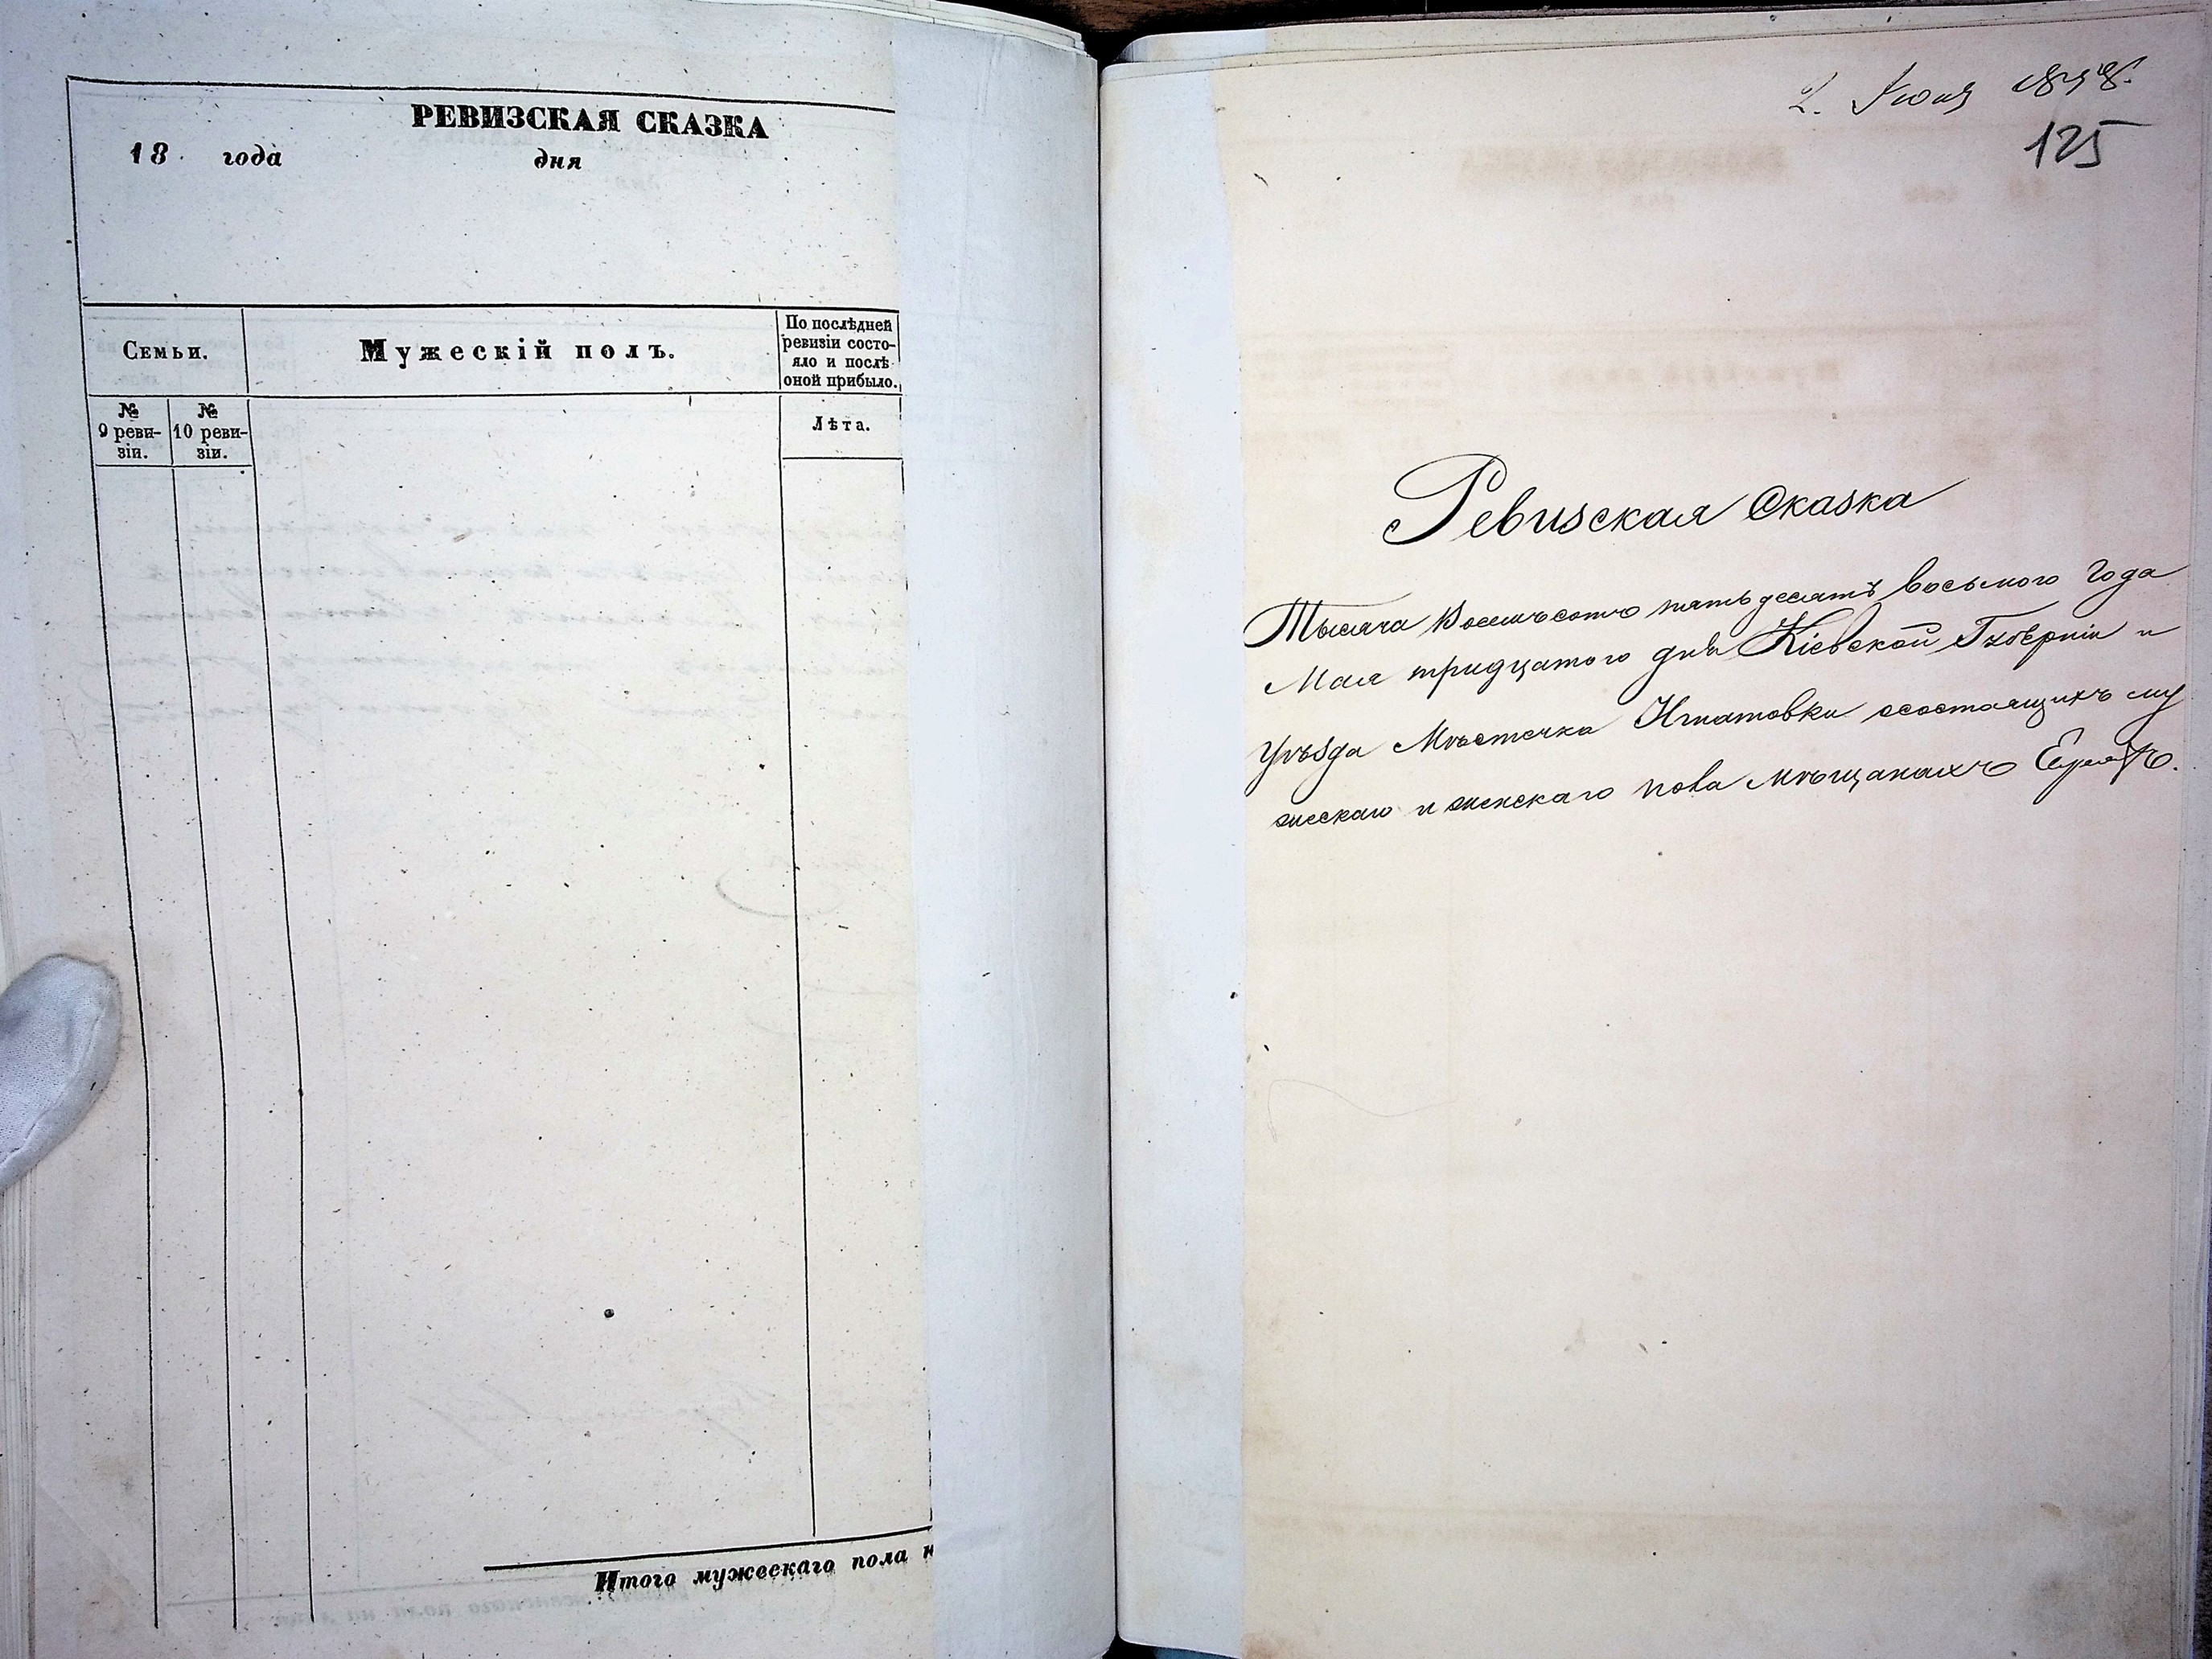 РЕВИЗСКАЯ СКАЗКА
18 года дня
Семьи.
Мужескій полъ.
По послѣдней
ревизіи состо-
яло и послѣ
оной прибыло.
№
9 реви-
зіи.
№
10 реви-
зіи.
Лѣта.
Итого мужескаго пола н
2. Июня 1858.
125
Ревизская Сказка
Тысяча Восемьсотъ пятьдесятъ восьмого Года
Мая тридцатого дня Кіевской Губерніи и
Уѣзда Мѣстечка Игнатовки осостаящихъ му
жескаго и женскаго пола мѣщанахъ